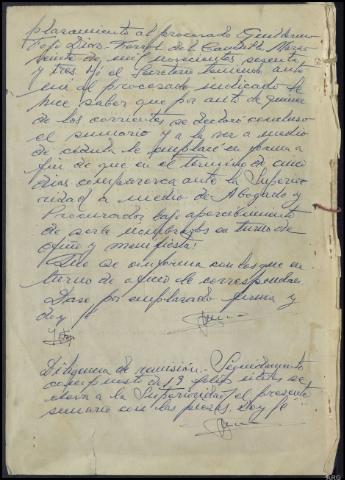 plazamiento al procesado Guillermo
Feijo Dios.- Ferrol del Caudillo Marzo
veinte de mil novecientos sesenta
y tres. Yo el Secretario teniendo ante
mi al procesado indicado le
hice saber que por auto de quince
de los corrientes se declaró concluso
el sumario y a la vez a medio
de cédula le emplacé en forma a
fin de que en el término de cinco
días comparezca ante la Superio-
ridad a medio de Abogado y
Procurador bajo apercibimiento
de serle nombrados en turno de
oficio y manifiesta:
Que se conforma con los que en
turno de oficio le correspondan
Dase por emplazado firma y
doy fe
Diligencia de remisión.- Seguidamente
compuesto de 19 folios útiles se
eleva a la Superioridad el presente
sumario con las piezas. Doy fe